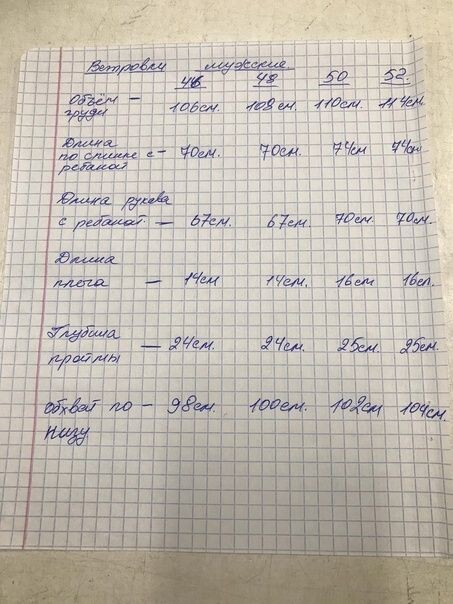 Ветровки мужские
46 48 50 52.
Объём — 106см. 108см. 110см. 114см.
груди
Длина
по спинке с — 70см. 70см. 74см 74см
ребаной
Длина рукава
с ребаной. — 67см. 67см. 70см. 70см.
Длина
плеча — 14см 14см. 16см 16см.
Глубина — 24см. 24см. 25см. 25см.
проймы
Обхват по — 98см. 100см. 102см 104см.
низу